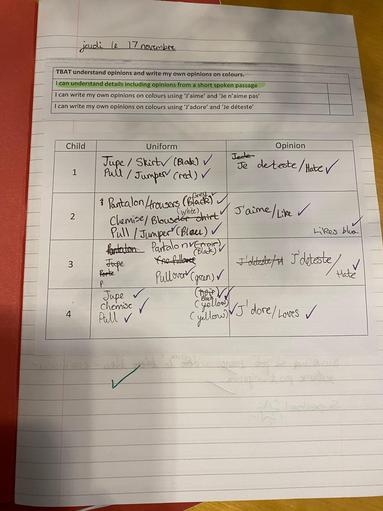 jeudi le 17 novembre
TBAT understand opinions and write my own opinions on colours.
I can understand details including opinions from a short spoken passage
I can write my own opinions on colours using 'J'aime' and 'Je n'aime pas'
I can write my own opinions on colours using 'J'adore' and 'Je déteste'
Child Uniform Opinion
1
Jupe / Skirt (Black)
Pull / Jumper (red)
Je deteste / Hate
2
Pantalon / trousers (Black)
Chemise / Blouse (White) shirt
Pull / Jumper (Bleu)
J'aime / Like
Likes blue
3
Pantalon Pantalon (Black)
Jupe
Pullover (green)
J'déteste / H J'déteste /
Hate
4
Jupe
Chemise (yellow)
Pull (yellow)
J'dore / Loves